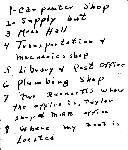 1- Carpenter Shop
2 Supply hut
3 Mess Hall
4 Transportation &
mechanics shop
5 Library & Post office
6 Plumbing Shop
7 The Barracks where
the office is, Taylor
shop, & MAR office
8 Where my tent is
located